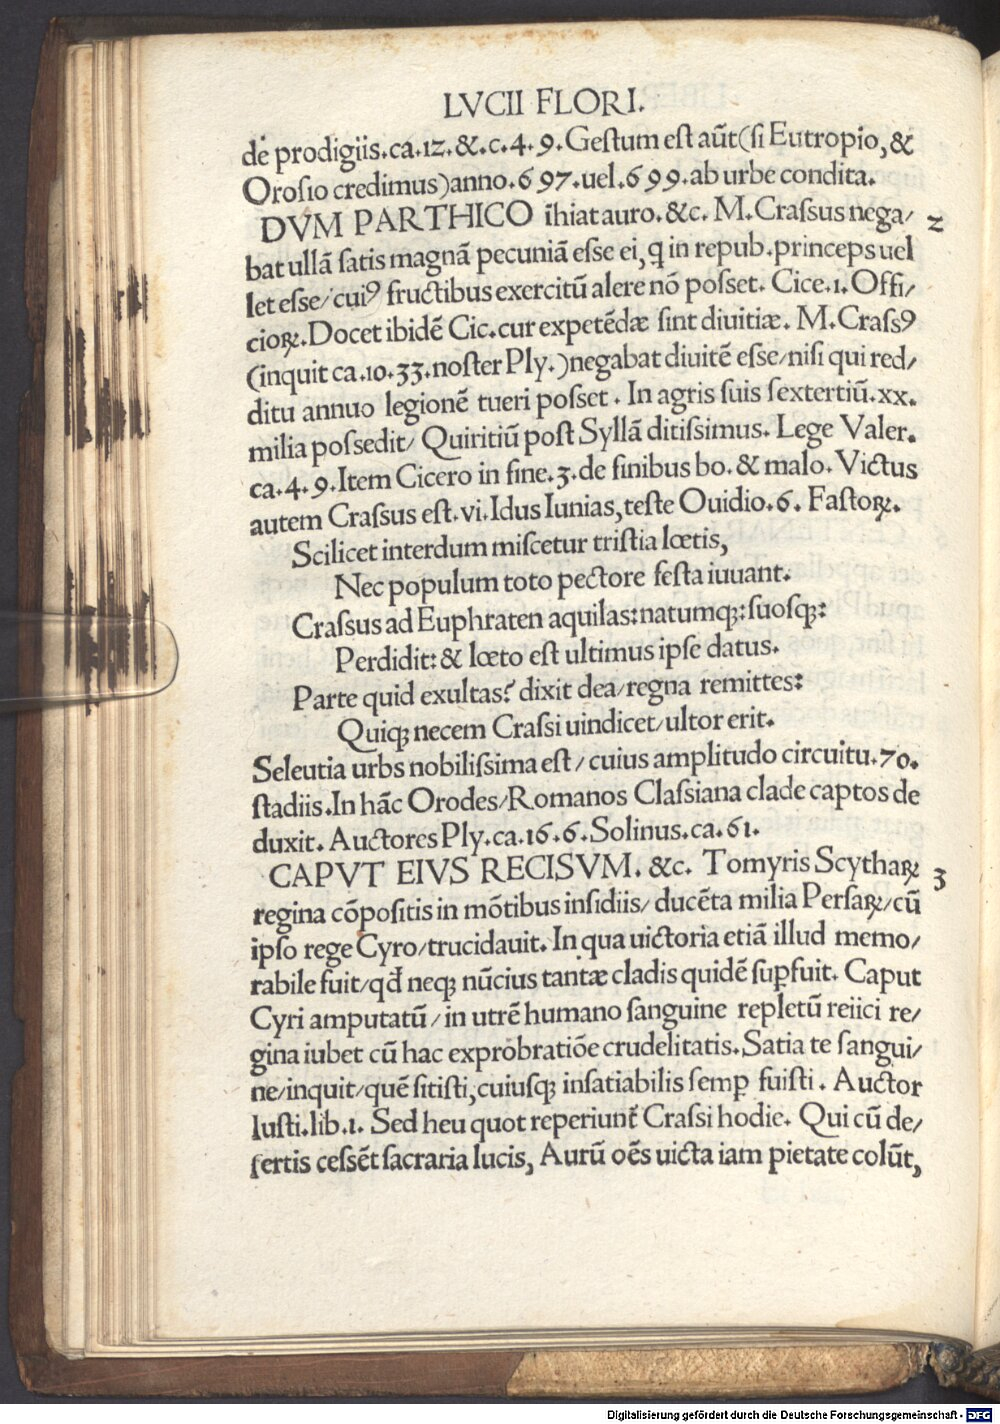 LVCII FLORI.
dē prodigiis.ca.12.&.c.4.9.Gestum est aūt(si Eutropio,&
Orosio credimus)anno.697.uel.699.ab urbe condita.
DVM PARTHICO īhiat auro.&c. M.Crassus nega/
2
bat ullā satis magnā pecuniā esse ei, ꝗ in repub.princeps uel
let esse/cuiꝰ fructibus exercitū alere nō posset. Cice.1.Offi/
cioꝝ.Docet ibidē Cic.cur expetēdæ sint diuitiæ. M.Crassꝰ
(inquit ca.10.33.noster Ply.)negabat diuitē esse/nisi qui red/
ditu annuo legionē tueri posset. In agris suis sextertiū.xx.
milia possedit/ Quiritiū post Syllā ditissimus. Lege Valer.
ca.4.9.Item Cicero in fine.3.de finibus bo.& malo. Victus
autem Crassus est.vi.Idus Iunias,teste Ouidio.6. Fastoꝝ.
Scilicet interdum miscetur tristia lœtis,
Nec populum toto pectore festa iuuant.
Crassus ad Euphraten aquilas:natumqꝫ:suosqꝫ:
Perdidit:& lœto est ultimus ipse datus.
Parte quid exultas? dixit dea/regna remittes:
Quiqꝫ necem Crassi uindicet/ultor erit.
Seleutia urbs nobilissima est/cuius amplitudo circuitu.70.
stadiis.In hāc Orodes/Romanos Classiana clade captos de
duxit. Auctores Ply.ca.16.6.Solinus.ca.61.
CAPVT EIVS RECISVM. &c. Tomyris Scythaꝝ
3
regina cōpositis in mōtibus insidiis/ducēta milia Persaꝝ/cū
ipso rege Cyro/trucidauit. In qua uictoria etiā illud memo/
rabile fuit/qđ neqꝫ nūcius tantæ cladis quidē suꝑfuit. Caput
Cyri amputatū/in utrē humano sanguine repletū reiici re/
gina iubet cū hac exprobratiōe crudelitatis.Satia te sangui/
ne/inquit/quē sitisti,cuiusqꝫ insatiabilis semꝑ fuisti. Auctor
Iusti.lib.1. Sed heu quot reperiunt᷑ Crassi hodie. Qui cū de/
sertis cessēt sacraria lucis, Aurū oēs uicta iam pietate colūt,
Digitalisierung gefördert durch die Deutsche Forschungsgemeinschaft - DFG